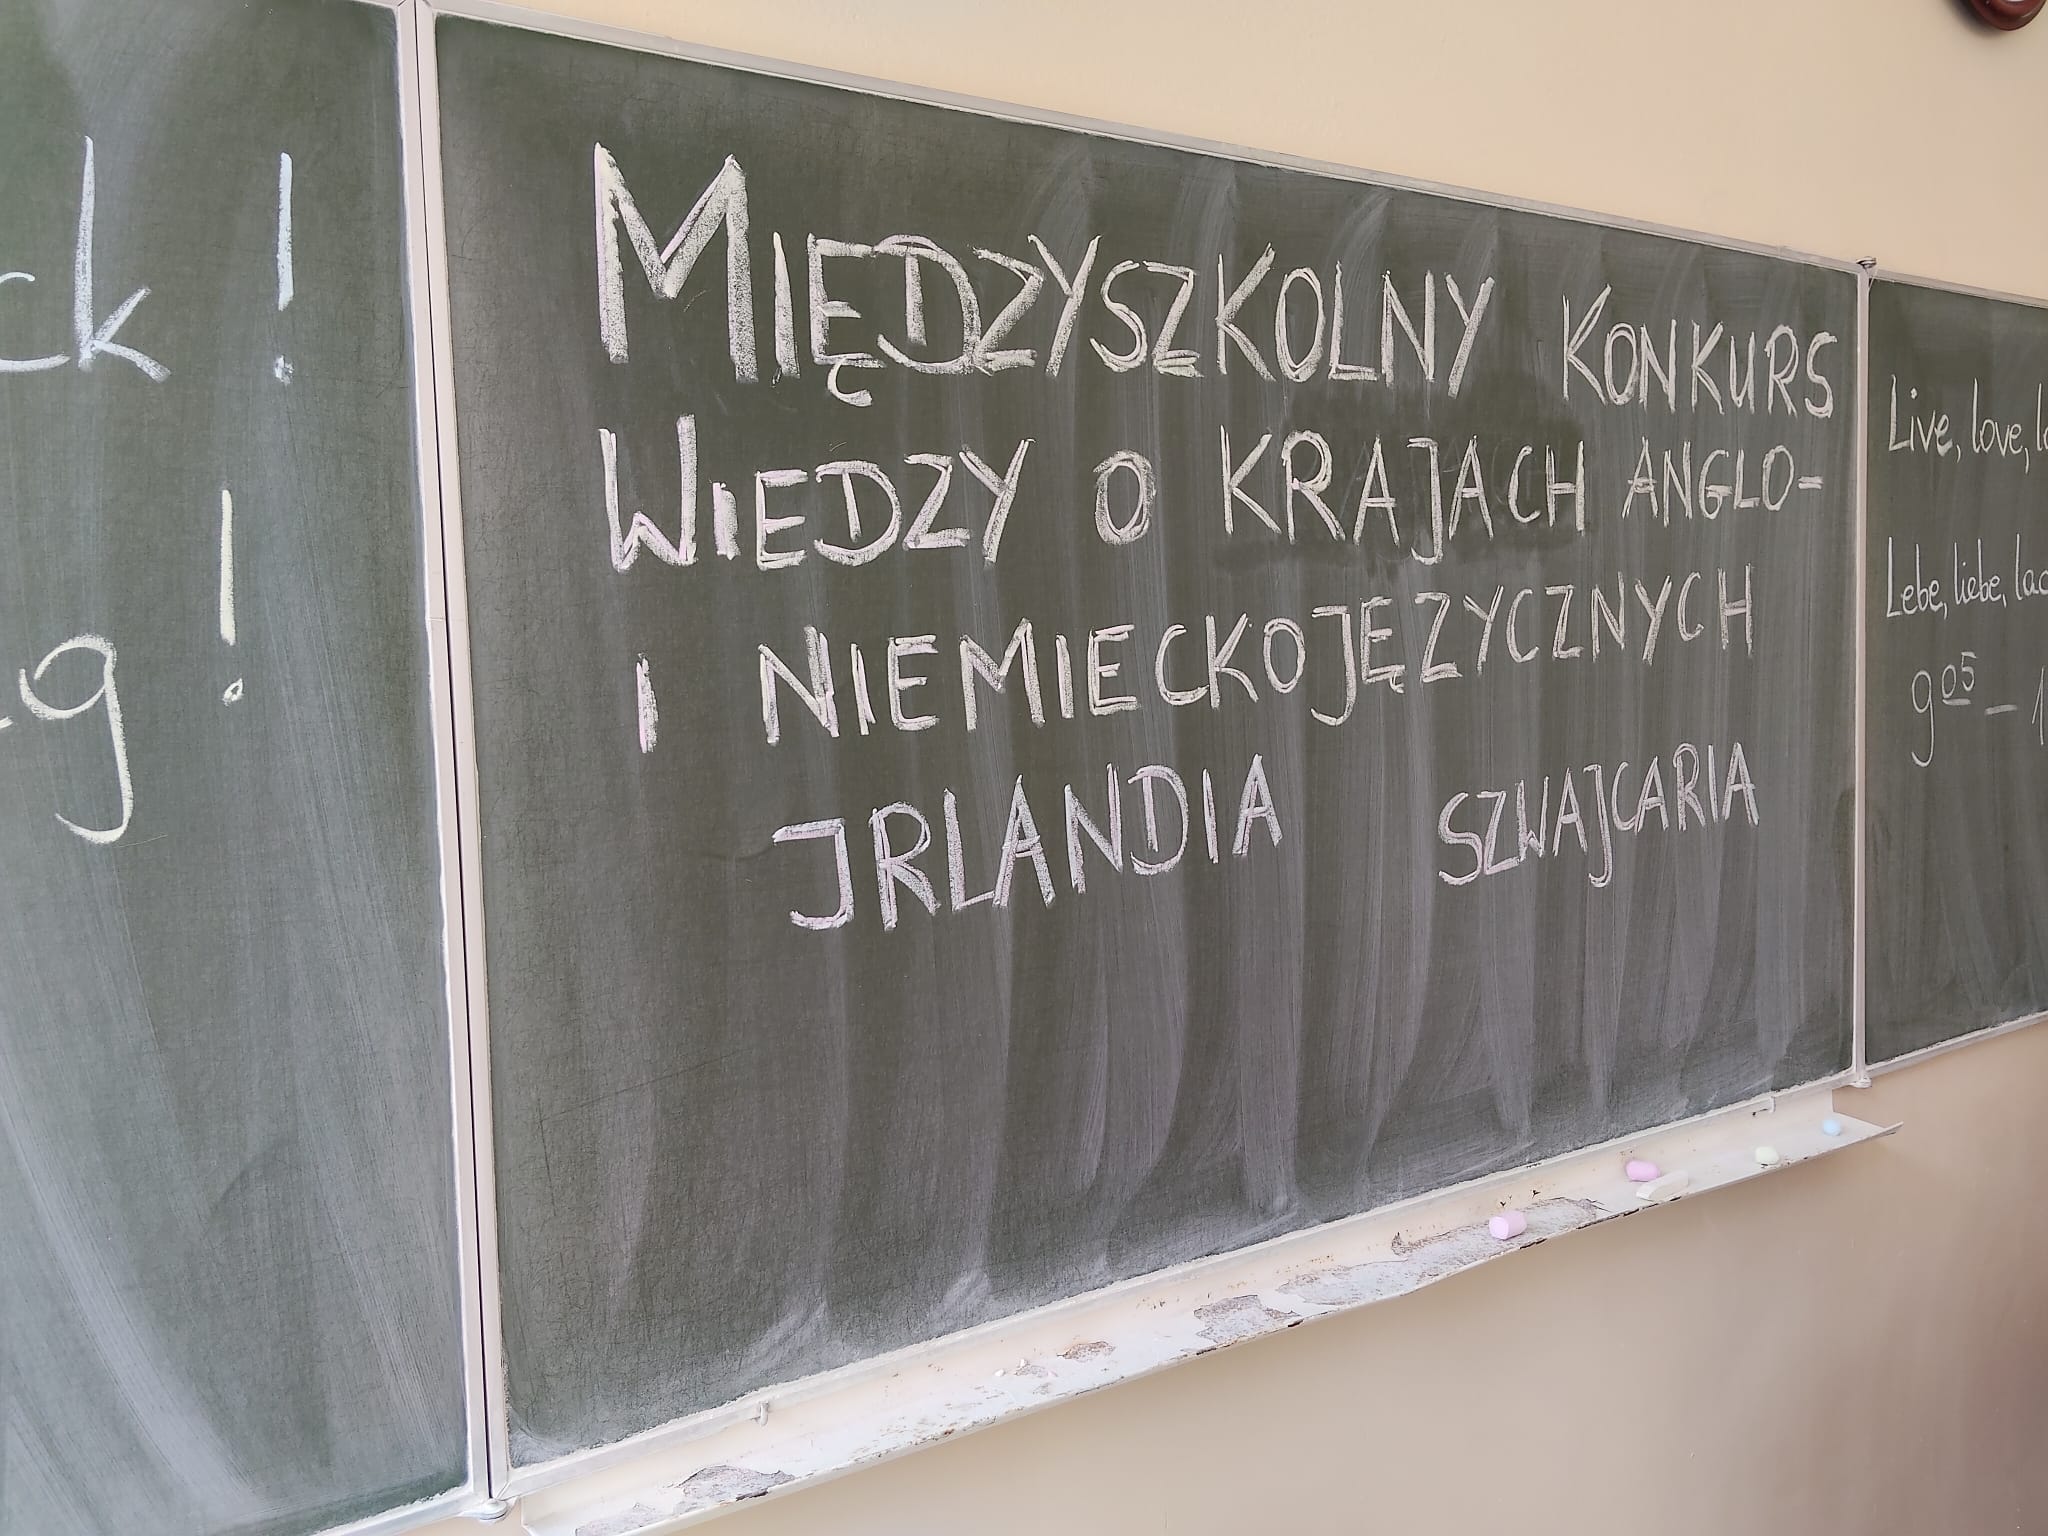 MIĘDZYSZKOLNY KONKURS
WIEDZY O KRAJACH ANGLO-
I NIEMIECKOJĘZYCZNYCH
JRLANDIA SZWAJCARIA
ck!
g!
Live, love, l
Lebe, liebe, lac
9 05 - 1